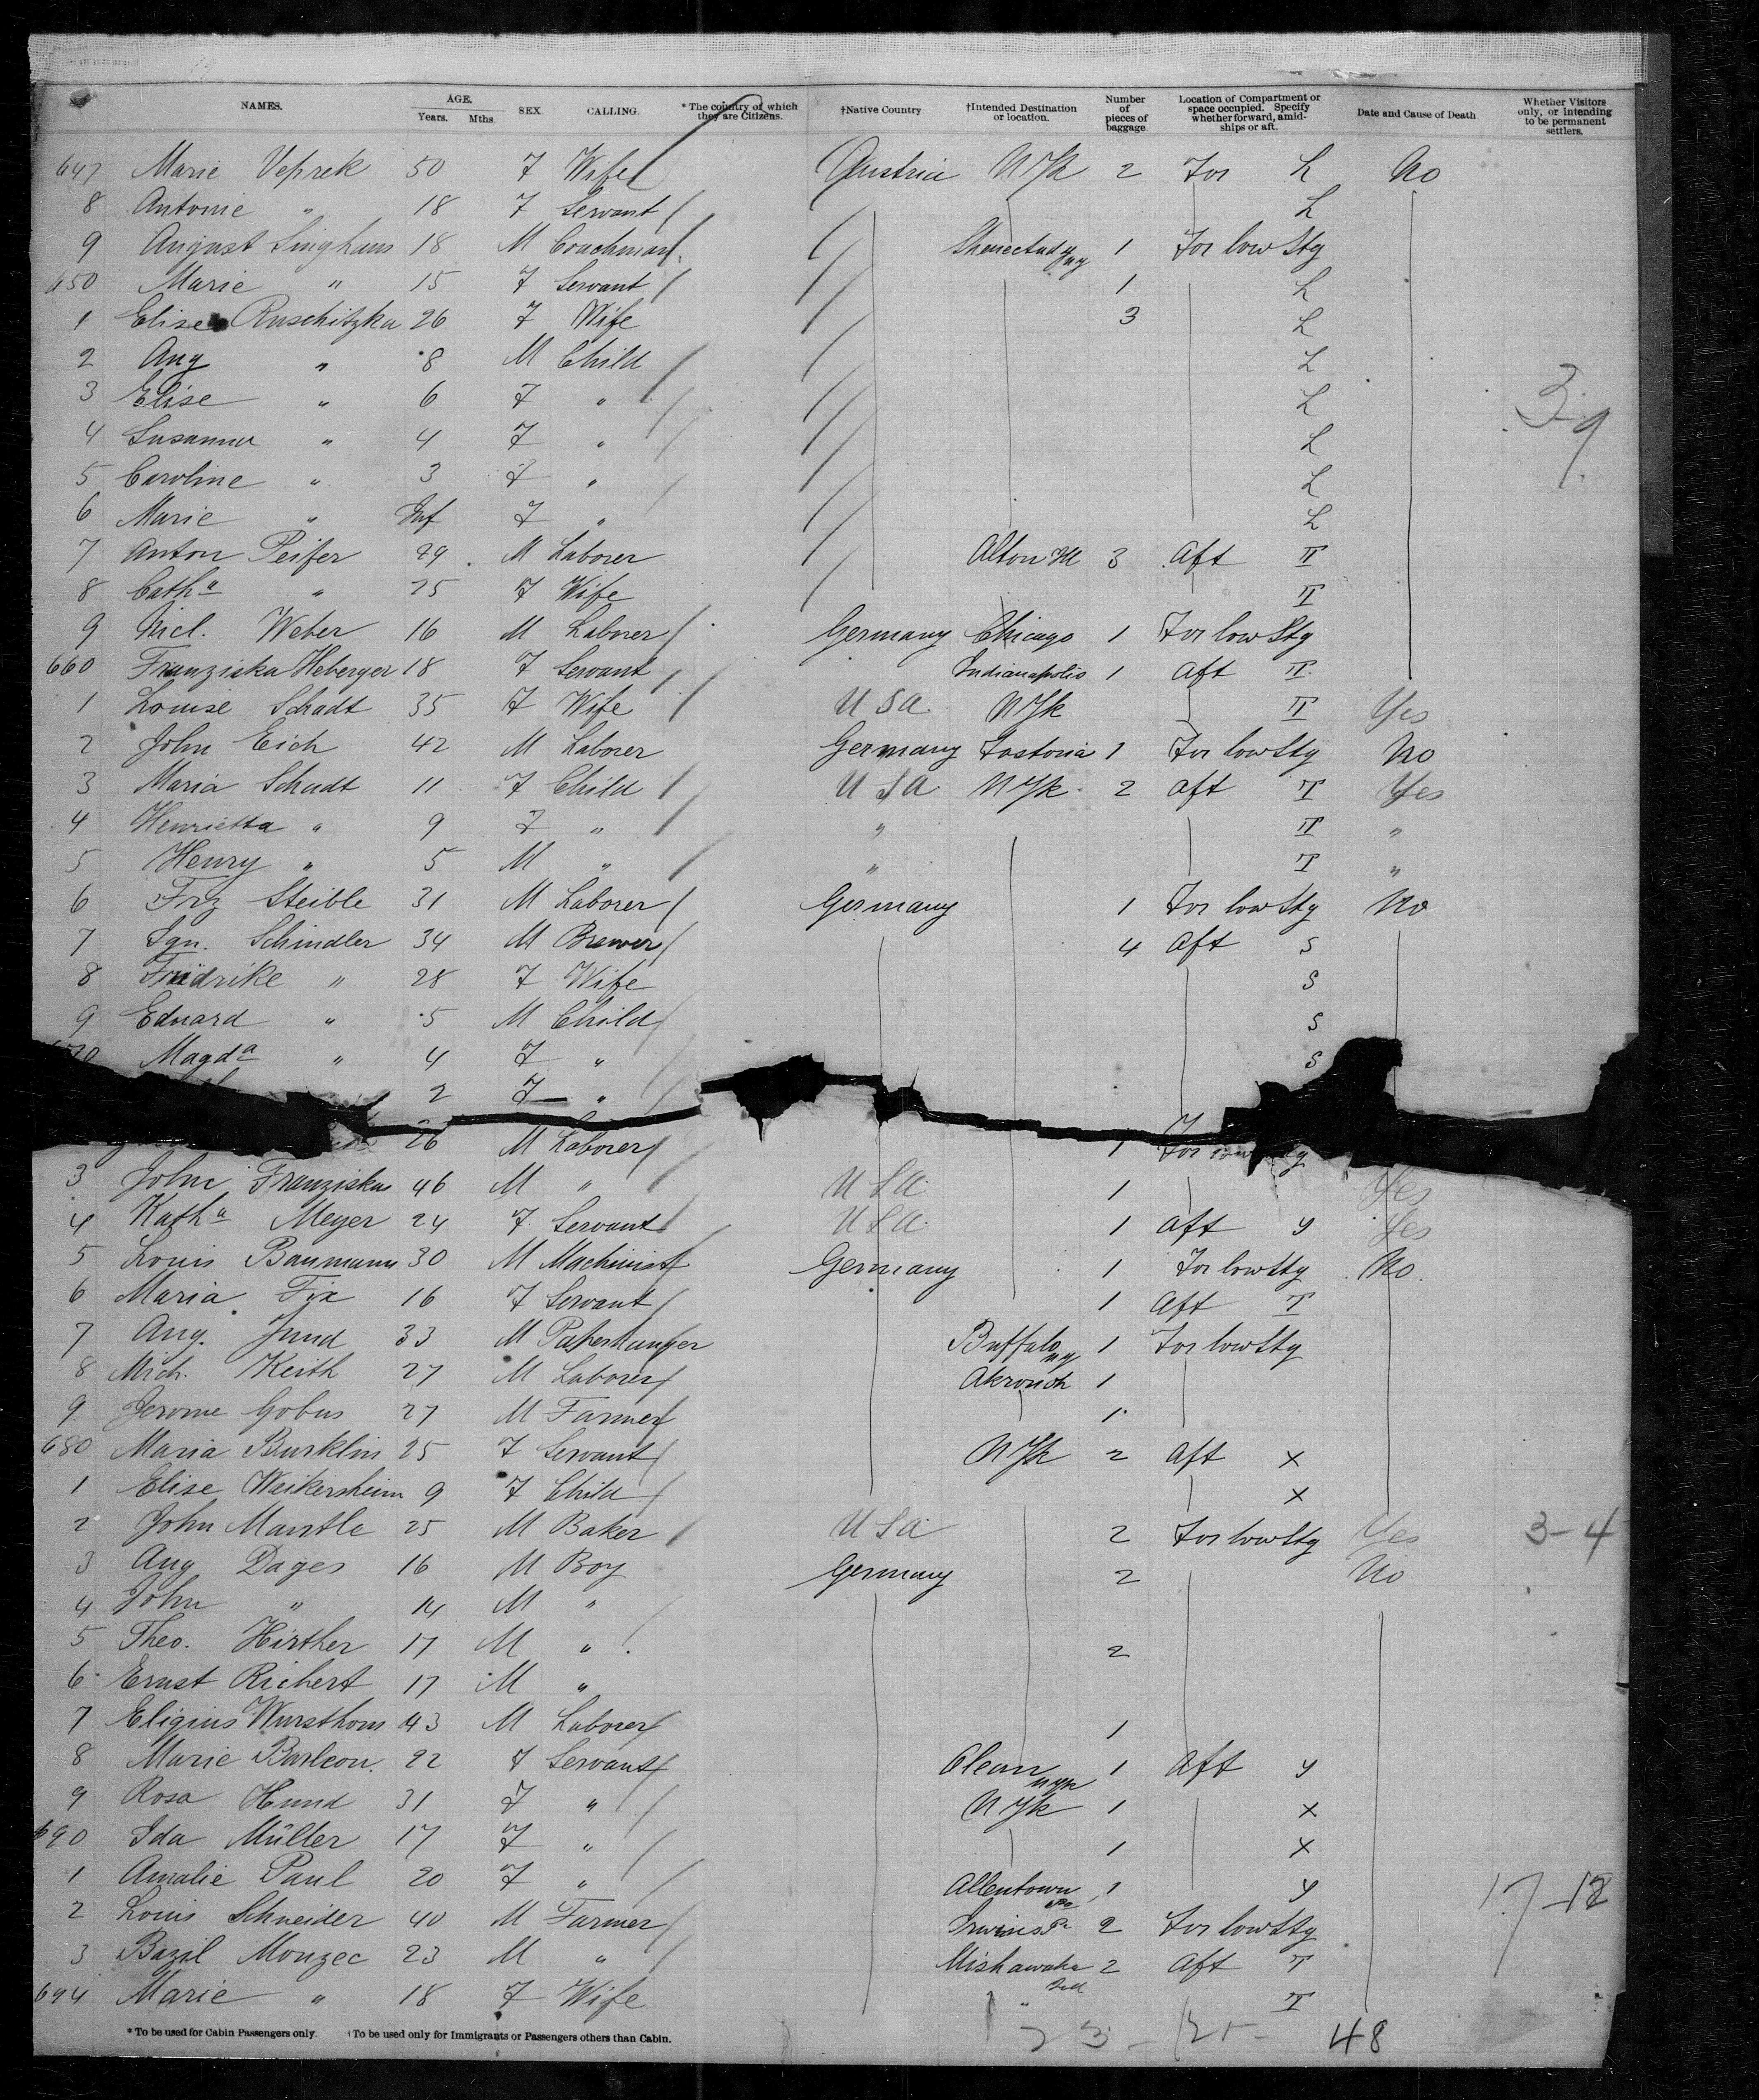 NAMES. AGE. Years. Mths. SEX. CALLING. * The country of which they are Citizens. †Native Country †Intended Destination or location. Number of pieces of baggage. Location of Compartment or space occupied. Specify whether forward, amidships or aft. Date and Cause of Death. Whether Visitors only, or intending to be permanent settlers.
647 Marie Veprek 50 F Wife Austria NYk 2 For L No
8 Antonie " 18 F Servant L
9 August Singhaus 18 M Coachman 1 For low Stg
650 Marie " 15 F Servant 1 L
1 Elise Ruschitzka 26 F Wife 3 L
2 Aug " 8 M Child L
3 Elise " 6 F " L
4 Susanna " 4 F " L
5 Caroline " 3 F " L
6 Marie " Inf F " L
7 Anton Peifer 29 M Laborer Alton Ill 3 Aft T
8 Catha " 25 F Wife T
9 Nicl. Weber 16 M Laborer Germany Chicago 1 For low Stg
660 Franziska Heberger 18 F Servant Indianapolis 1 Aft T
1 Louise Schadt 35 F Wife USA NYk T Yes
2 John Eich 42 M Laborer Germany Fostoria 1 For low Stg No
3 Maria Schadt 11 F Child USA NYk 2 Aft T Yes
4 Henrietta " 9 F " " T "
5 Henry " 5 M " " T "
6 Frz Steible 31 M Laborer Germany 1 For low Stg No
7 Ign. Schindler 34 M Brewer 4 Aft S
8 Friedrike " 28 F Wife S
9 Eduard " 5 M Child S
Magda " 4 F " S
2 F "
26 M Laborer 1 For
3 John Franziskus 46 M " USA 1 Yes
4 Katha Meyer 24 F Servant USA 1 Aft y Yes
5 Louis Baumann 30 M Machinist Germany 1 For low Stg No
6 Maria Fix 16 F Servant 1 Aft T
7 Aug. Jund 33 M Paperhanger Buffalo NY 1 For low Stg
8 Mich. Keith 27 M Laborer Akron Oh 1
9 Jerome Gobus 27 M Farmer 1
680 Maria Burklin 25 F Servant NYk 2 Aft X
1 Elise Weikersheim 9 F Child X
2 John Mantle 25 M Baker USA 2 For low Stg Yes 3-4
3 Aug Dages 16 M Boy Germany 2 No
4 John " 14 M "
5 Theo. Hirther 17 M " 2
6 Ernst Richert 17 M "
7 Eligius Wursthorn 43 M Laborer 1
8 Marie Barleon 22 F Servant Olean 1 Aft y
9 Rosa Hund 31 F " NYk 1 X
690 Ida Müller 17 F " 1 X
1 Amalie Paul 20 F " Allentown Pa 1 y
2 Louis Schneider 40 M Farmer Irwins Pa 2 For low Stg 17-18
3 Bazil Mouzec 23 M " Mishawaka Ind 2 Aft T
694 Marie " 18 F Wife " T
* To be used for Cabin Passengers only. †To be used only for Immigrants or Passengers others than Cabin.
23 - 25 - 48